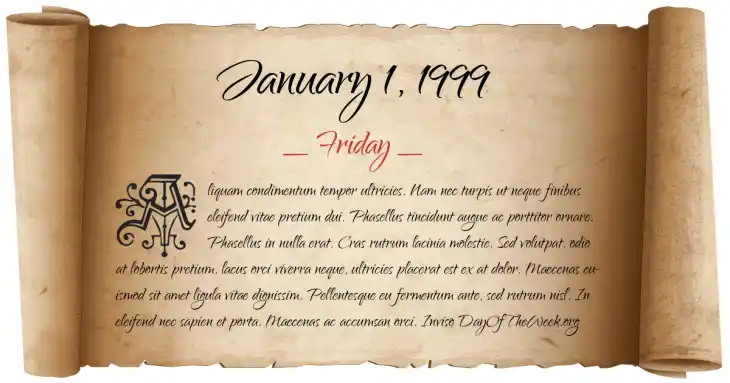 January 1, 1999
__ Friday __
Aliquam condimentum tempor ultricies. Nam nec turpis ut neque finibus
eleifend vitae pretium dui. Phasellus tincidunt augue ac porttitor ornare.
Phasellus in nulla erat. Cras rutrum lacinia molestie. Sed volutpat, odio
at lobortis pretium, lacus orci viverra neque, ultricies placerat est ex at dolor. Maecenas eu-
ismod sit amet ligula vitae dignissim. Pellentesque eu fermentum ante, sed rutrum nisl. In
eleifend nec sapien et porta. Maecenas ac accumsan orci. Inviso DayOfTheWeek.org